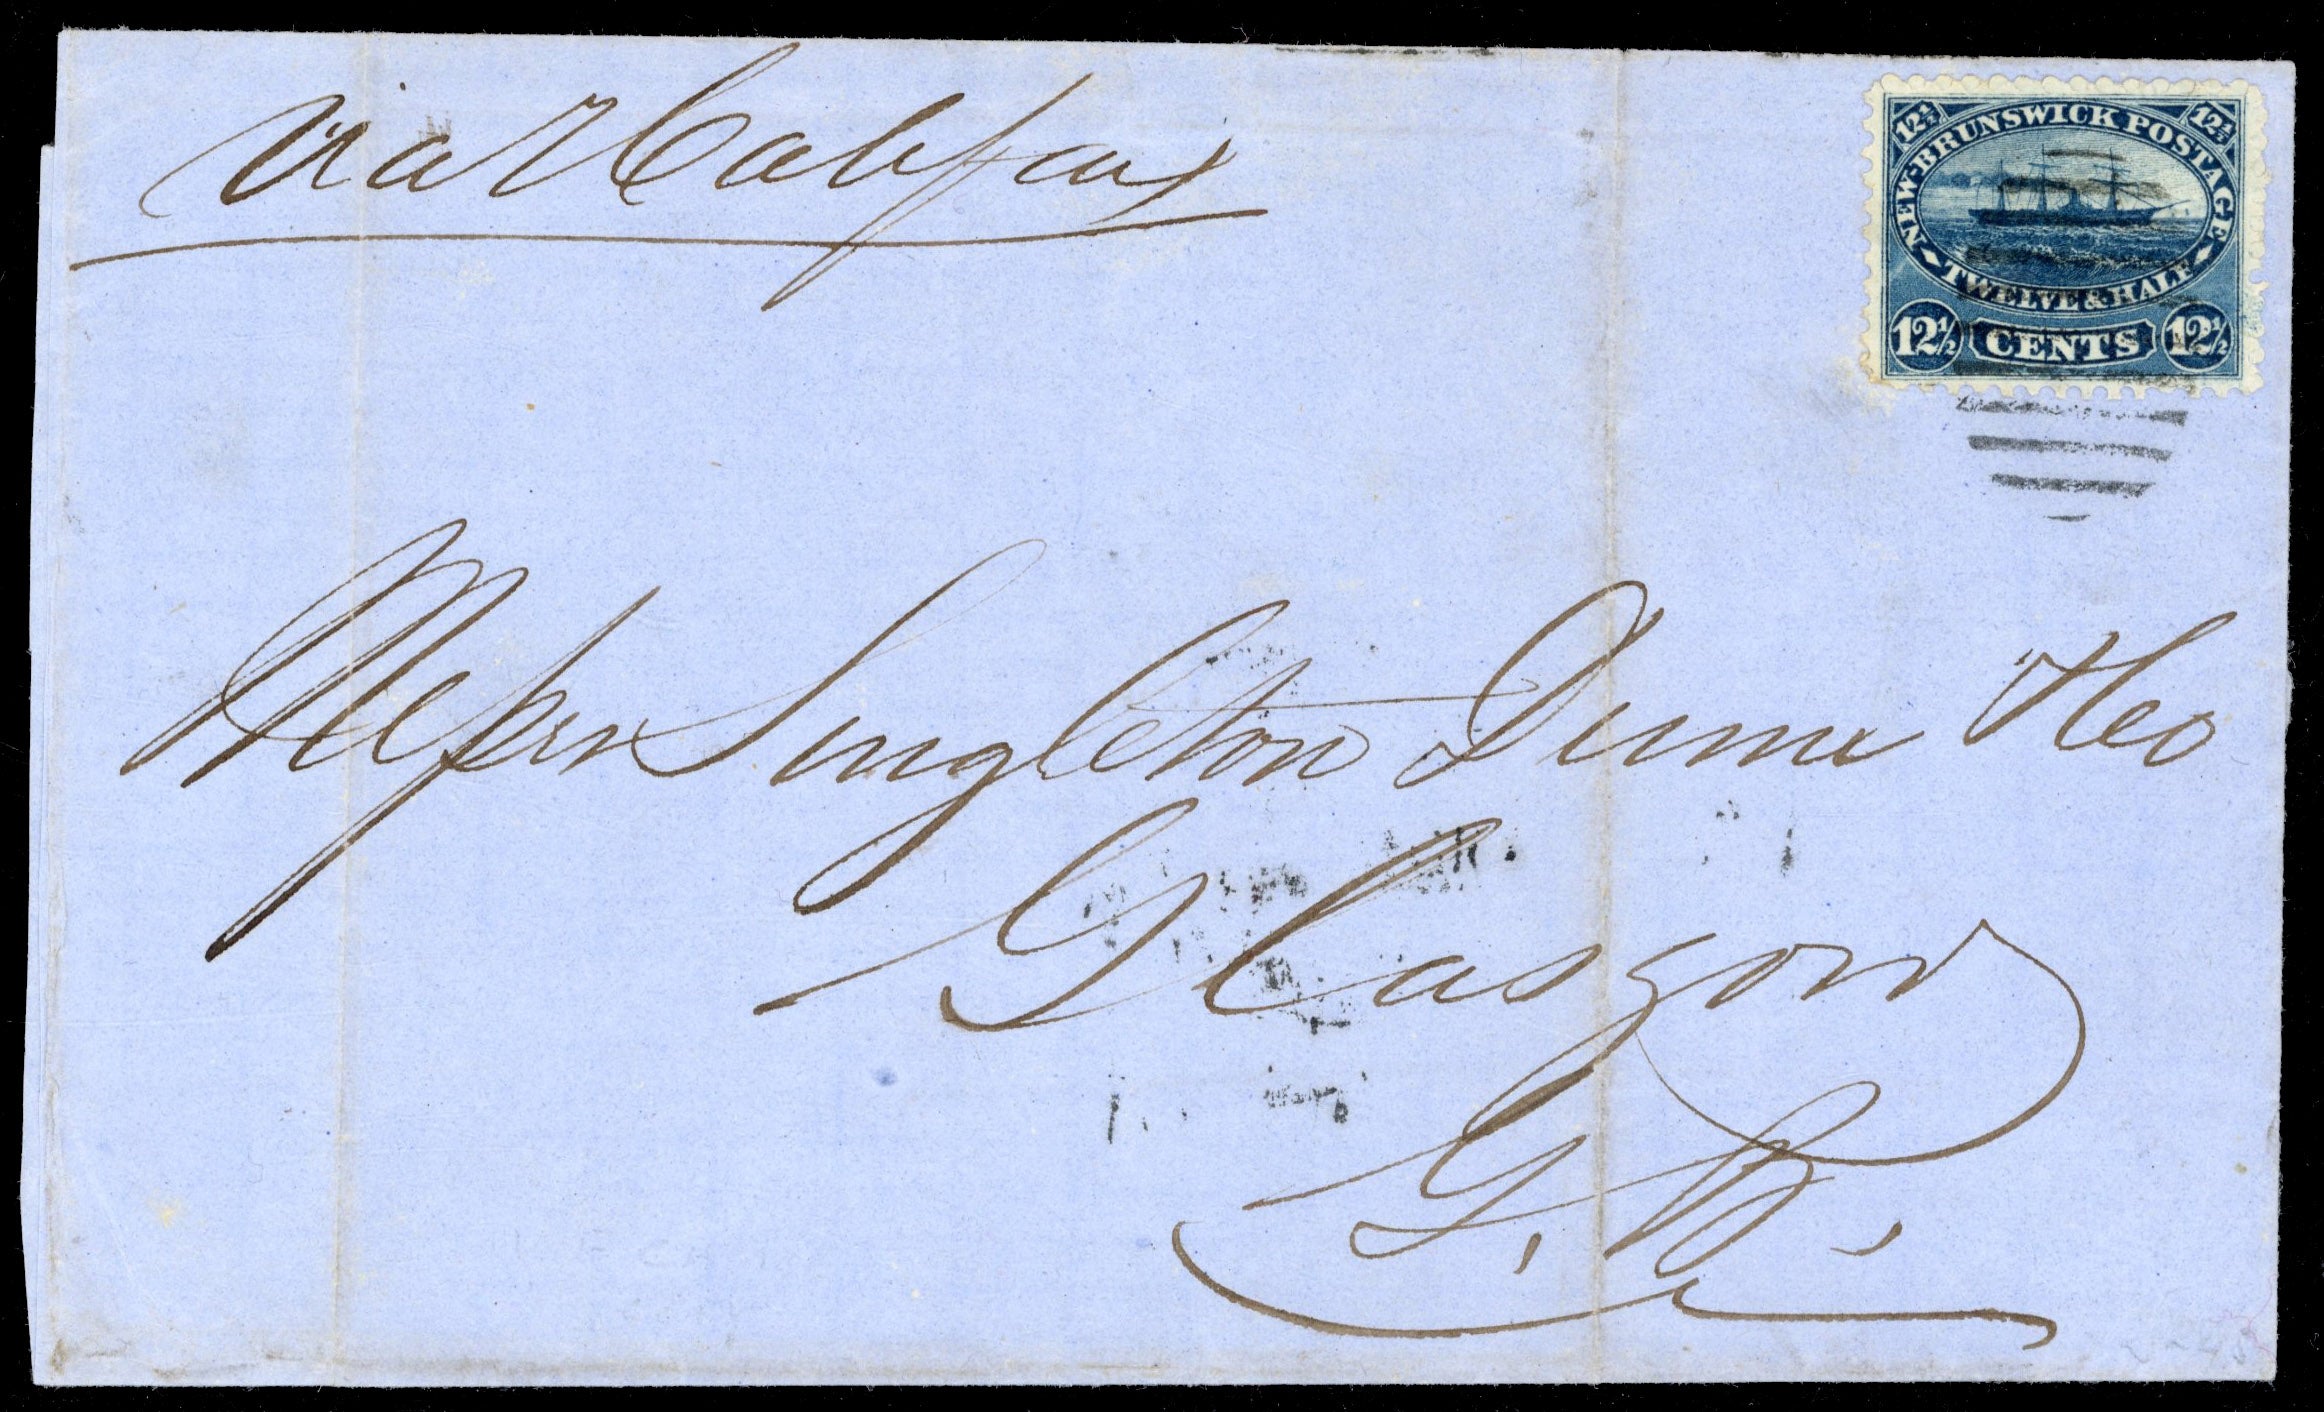 via Halifax
12½ NEW-BRUNSWICK POSTAGE 12½
TWELVE & HALF
12½ CENTS 12½
Messrs Singleton Dunn & Co
Glasgow
G.B.